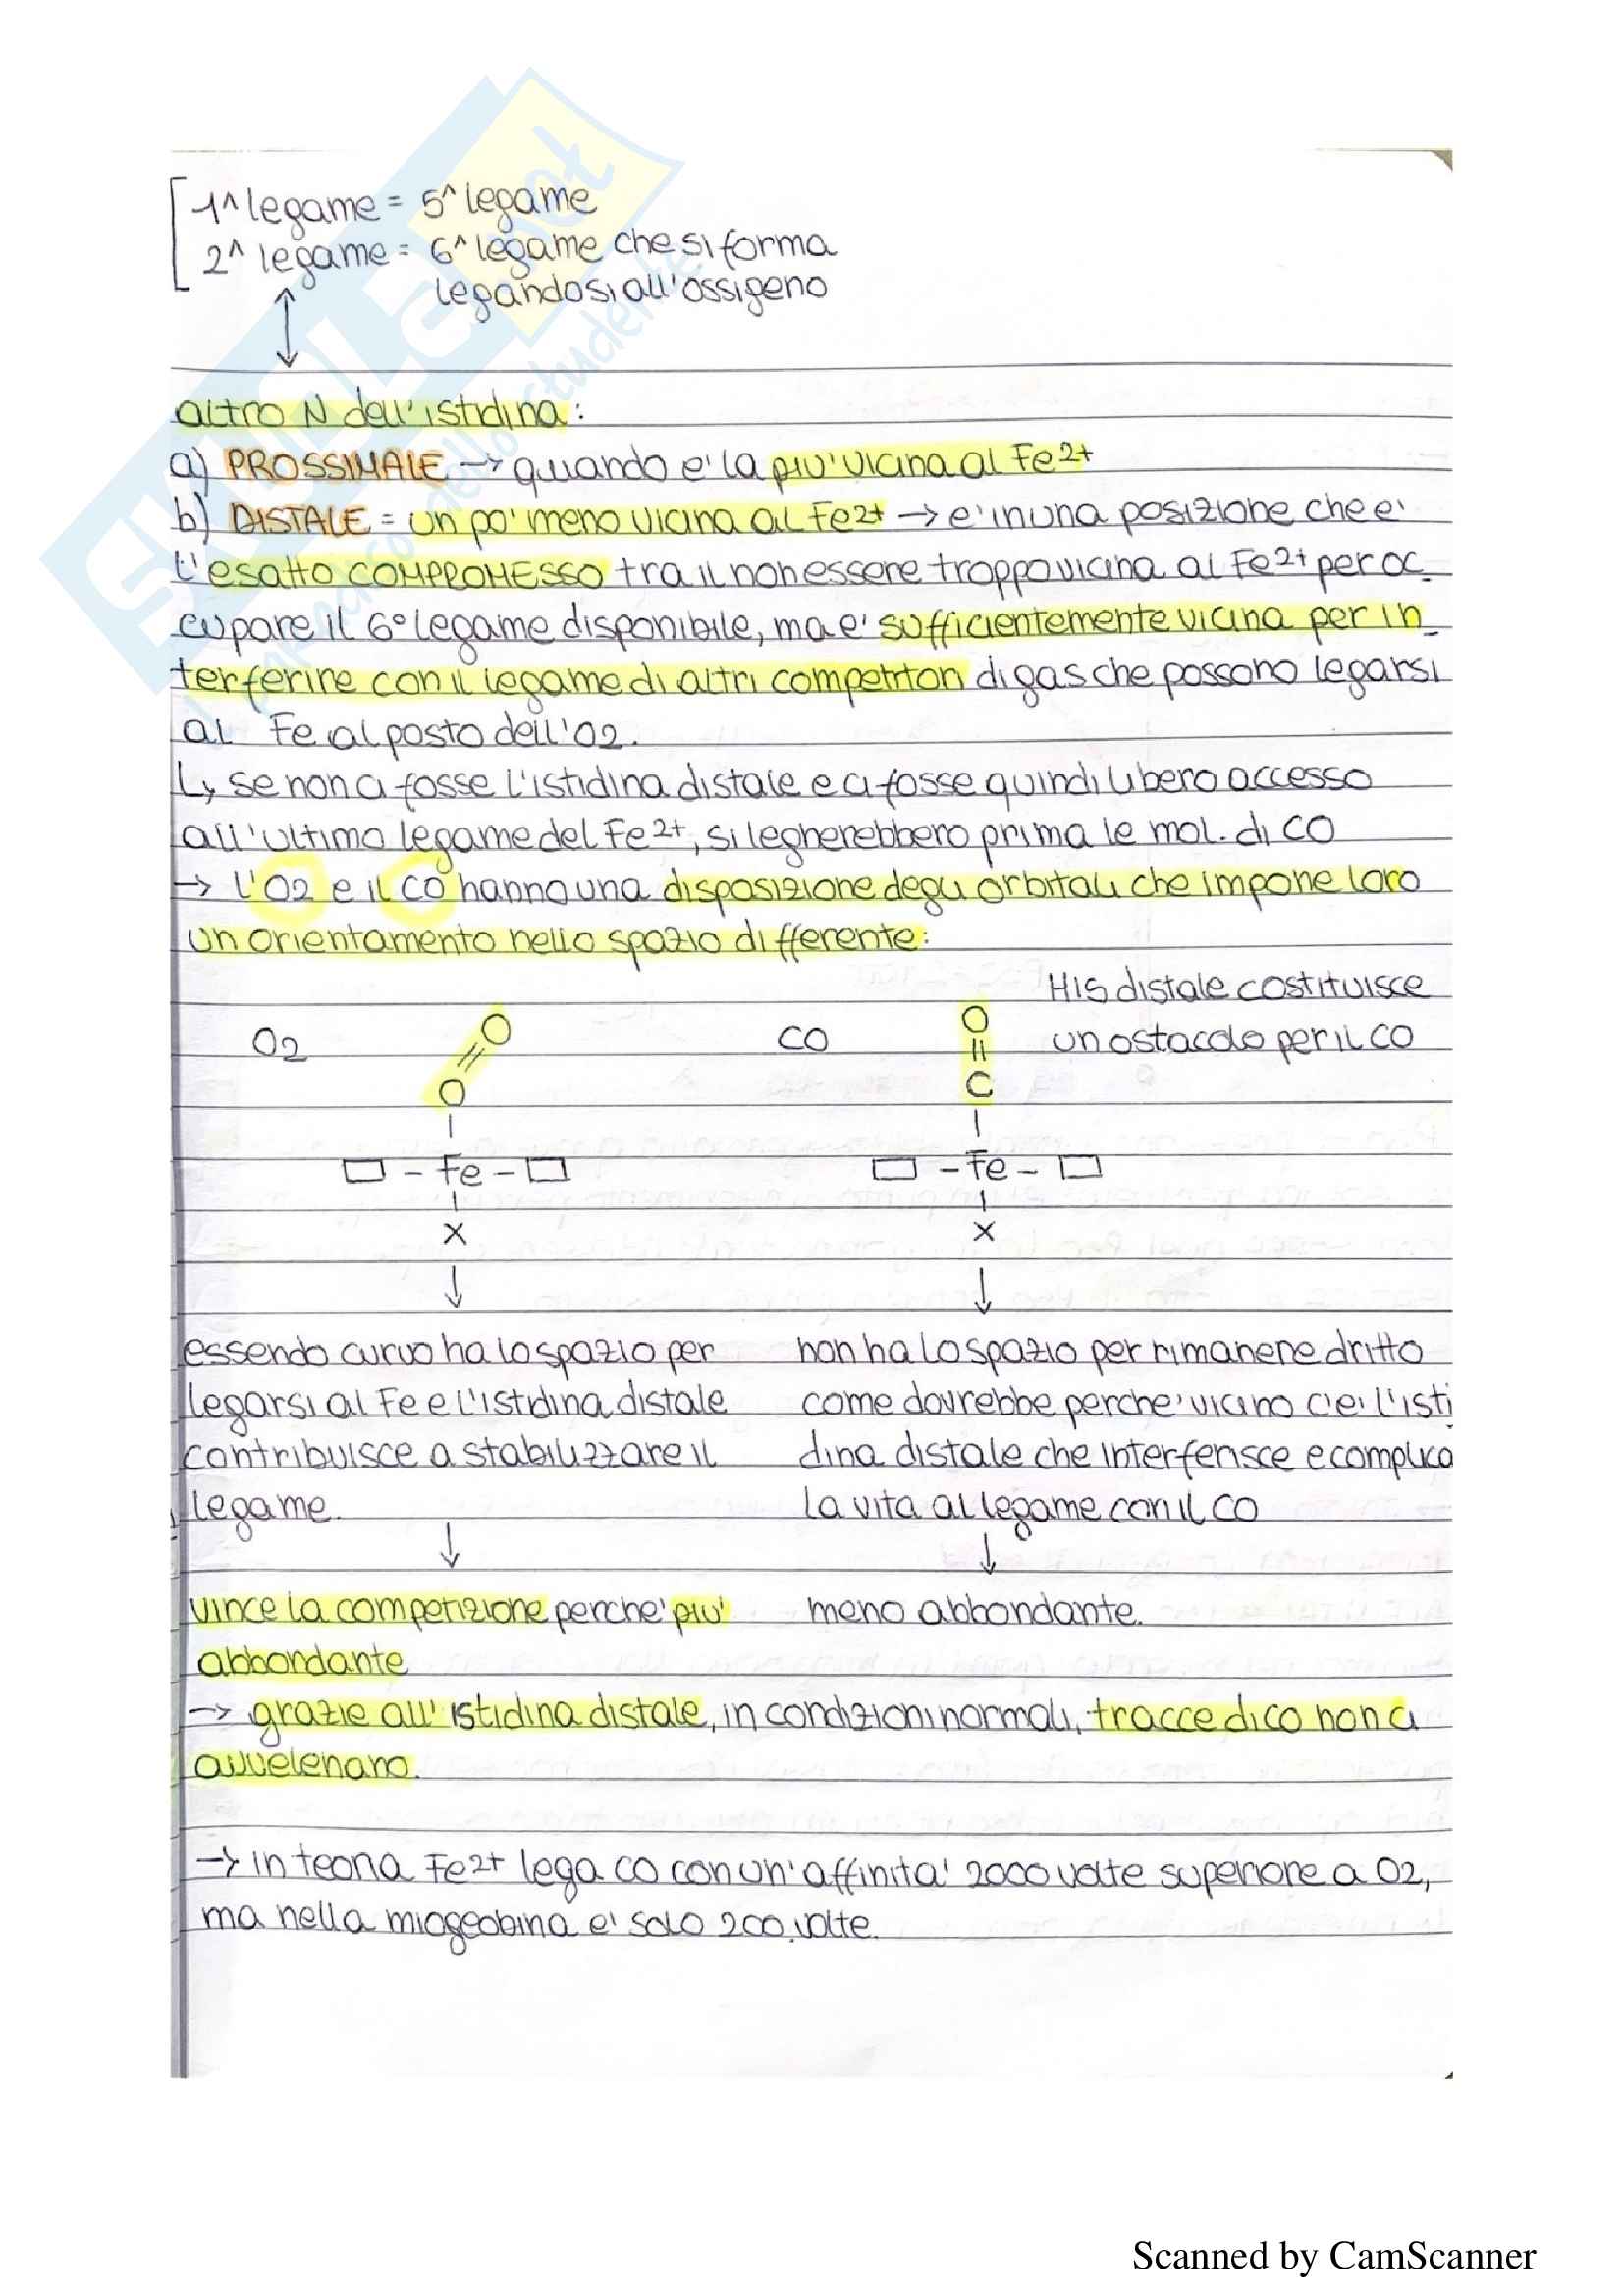 1^ legame = 5^ legame
2^ legame = 6^ legame che si forma
legandosi all'ossigeno
altro N dell'istidina:
a) PROSSIMALE → quando e' la piu' vicina al Fe2+
b) DISTALE = un po' meno vicina al Fe2+ → e' in una posizione che e'
l'esatto COMPROMESSO tra il non essere troppo vicina al Fe2+ per oc_
cupare il 6° legame disponibile, ma e' sufficientemente vicina per in_
terferire con il legame di altri competitori di gas che possono legarsi
al Fe al posto dell'O2.
↳ se non ci fosse l'istidina distale e ci fosse quindi libero accesso
all'ultimo legame del Fe2+, si legherebbero prima le mol. di CO
→ l'O2 e il CO hanno una disposizione degli orbitali che impone loro
un orientamento nello spazio differente:
His distale costituisce
un ostacolo per il CO
O2
O
=
O
-
□ - Fe - □
-
X
↓
CO
O
=
C
-
□ - Fe - □
-
X
↓
essendo curvo ha lo spazio per
legarsi al Fe e l'istidina distale
contribuisce a stabilizzare il
legame.
↓
vince la competizione perche' piu'
abbondante
non ha lo spazio per rimanere dritto
come dovrebbe perche' vicino c'e' l'isti
dina distale che interferisce e complica
la vita al legame con il CO
↓
meno abbondante.
→ grazie all'istidina distale, in condizioni normali, tracce di co non ci
avvelenano.
→ in teoria Fe2+ lega CO con un'affinita' 2000 volte superiore a O2,
ma nella mioglobina e' solo 200 volte.
SKUOLA.not
Scanned by CamScanner